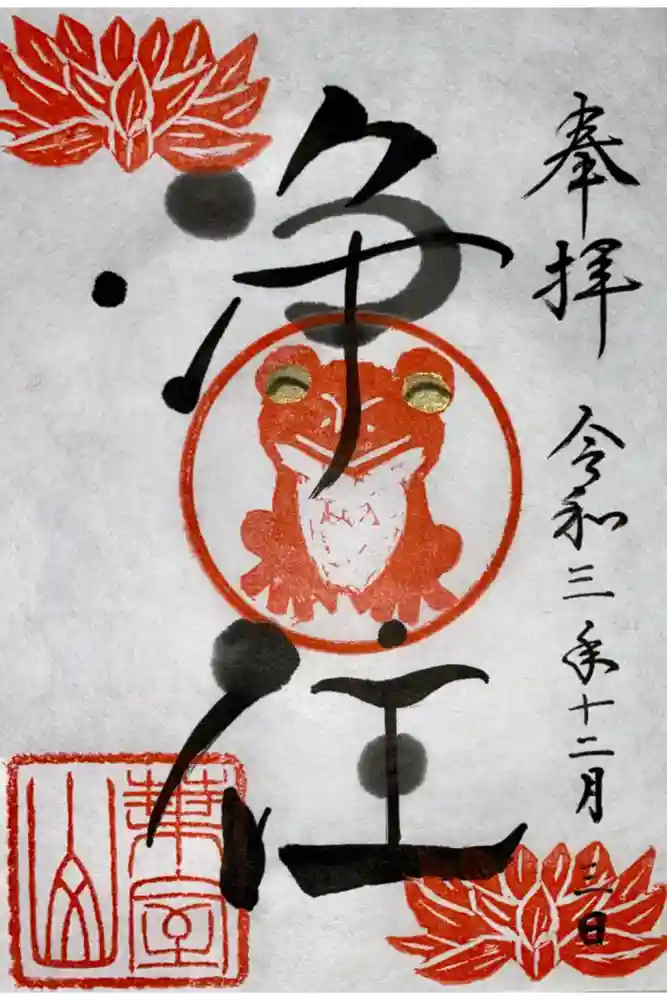 奉拝 令和三年十二月三日
浄住
葉室山